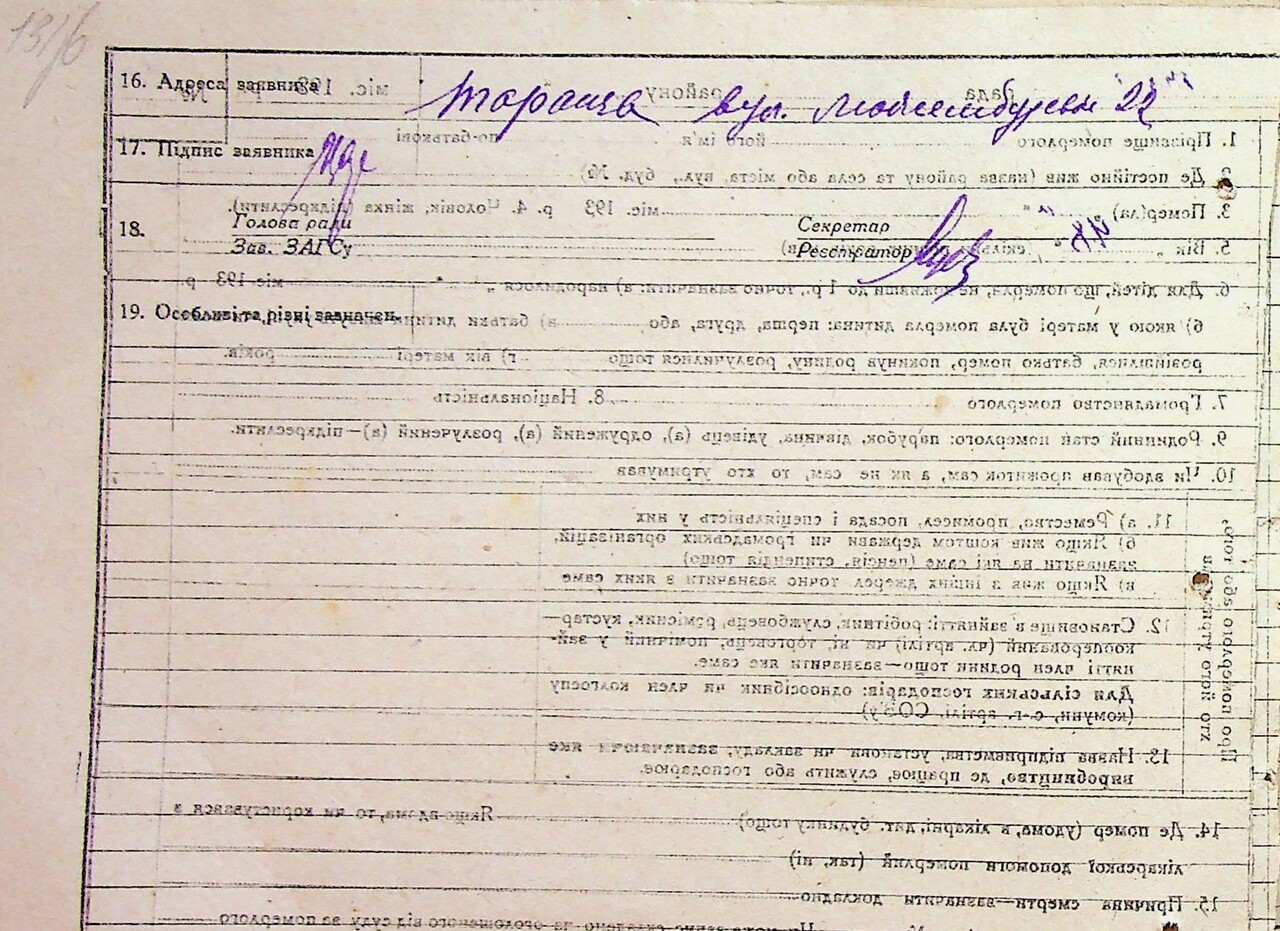 131/6
16. Адреса заявника Тараща вул. Люксембурги 22
17. Підпис заявника
18. Голова ради Секретар
Зав. ЗАГСу Реєстратор
19. Особливі та різні зазначен.
рада району міс. 193 р. №
1. Прізвище померлого його ім'я по-батькові
2. Де постійно жив (назва району та села або міста, вул., буд. №)
3. Помер(ла) " " міс. 193 р. 4. Чоловік, жінка (підкреслити).
5. Вік
6. Для дітей, що померли, не доживши до 1 р., точно зазначити: а) народилося " " міс. 193 р
б) якою у матері була померла дитина: перша, друга, або в) батьки дитини
розійшлися, батько помер, покинув родину, розлучилися тощо г) вік матері років.
7. Громадянство померлого 8. Національність
9. Родинний стан померлого: парубок, дівчина, удівець (а), одружений (а), розлучений (а)—підкреслити.
10. Чи здобував прожиток сам, а як не сам, то хто утримував
Про померлого або того,
хто його утримував
11. а) Ремество, промисел, посада і спеціяльність у них
б) Якщо жив коштом держави чи громадських організацій,
зазначити на які саме (пенсія, стипендія тощо)
в) Якщо жив з інших джерел точно зазначити з яких саме
12. Становище в зайнятті: робітник, службовець, ремісник, кустар—
кооперований (чл. артілі) чи ні, торговець, помічний у зай-
нятті член родини тощо—зазначити яке саме.
Для сільських господарів: одноосібник чи член колгоспу
(комуни, с.-г. артілі, СОЗ'у)
13. Назва підприємства, установи чи закладу, зазначаючи яке
виробництво, де працює, служить або господарює.
14. Де помер (удома, в лікарні, дит. будинку тощо) Якщо вдома, то чи користувався з
лікарської допомоги померлий (так, ні)
15. Причина смерти—зазначити докладно